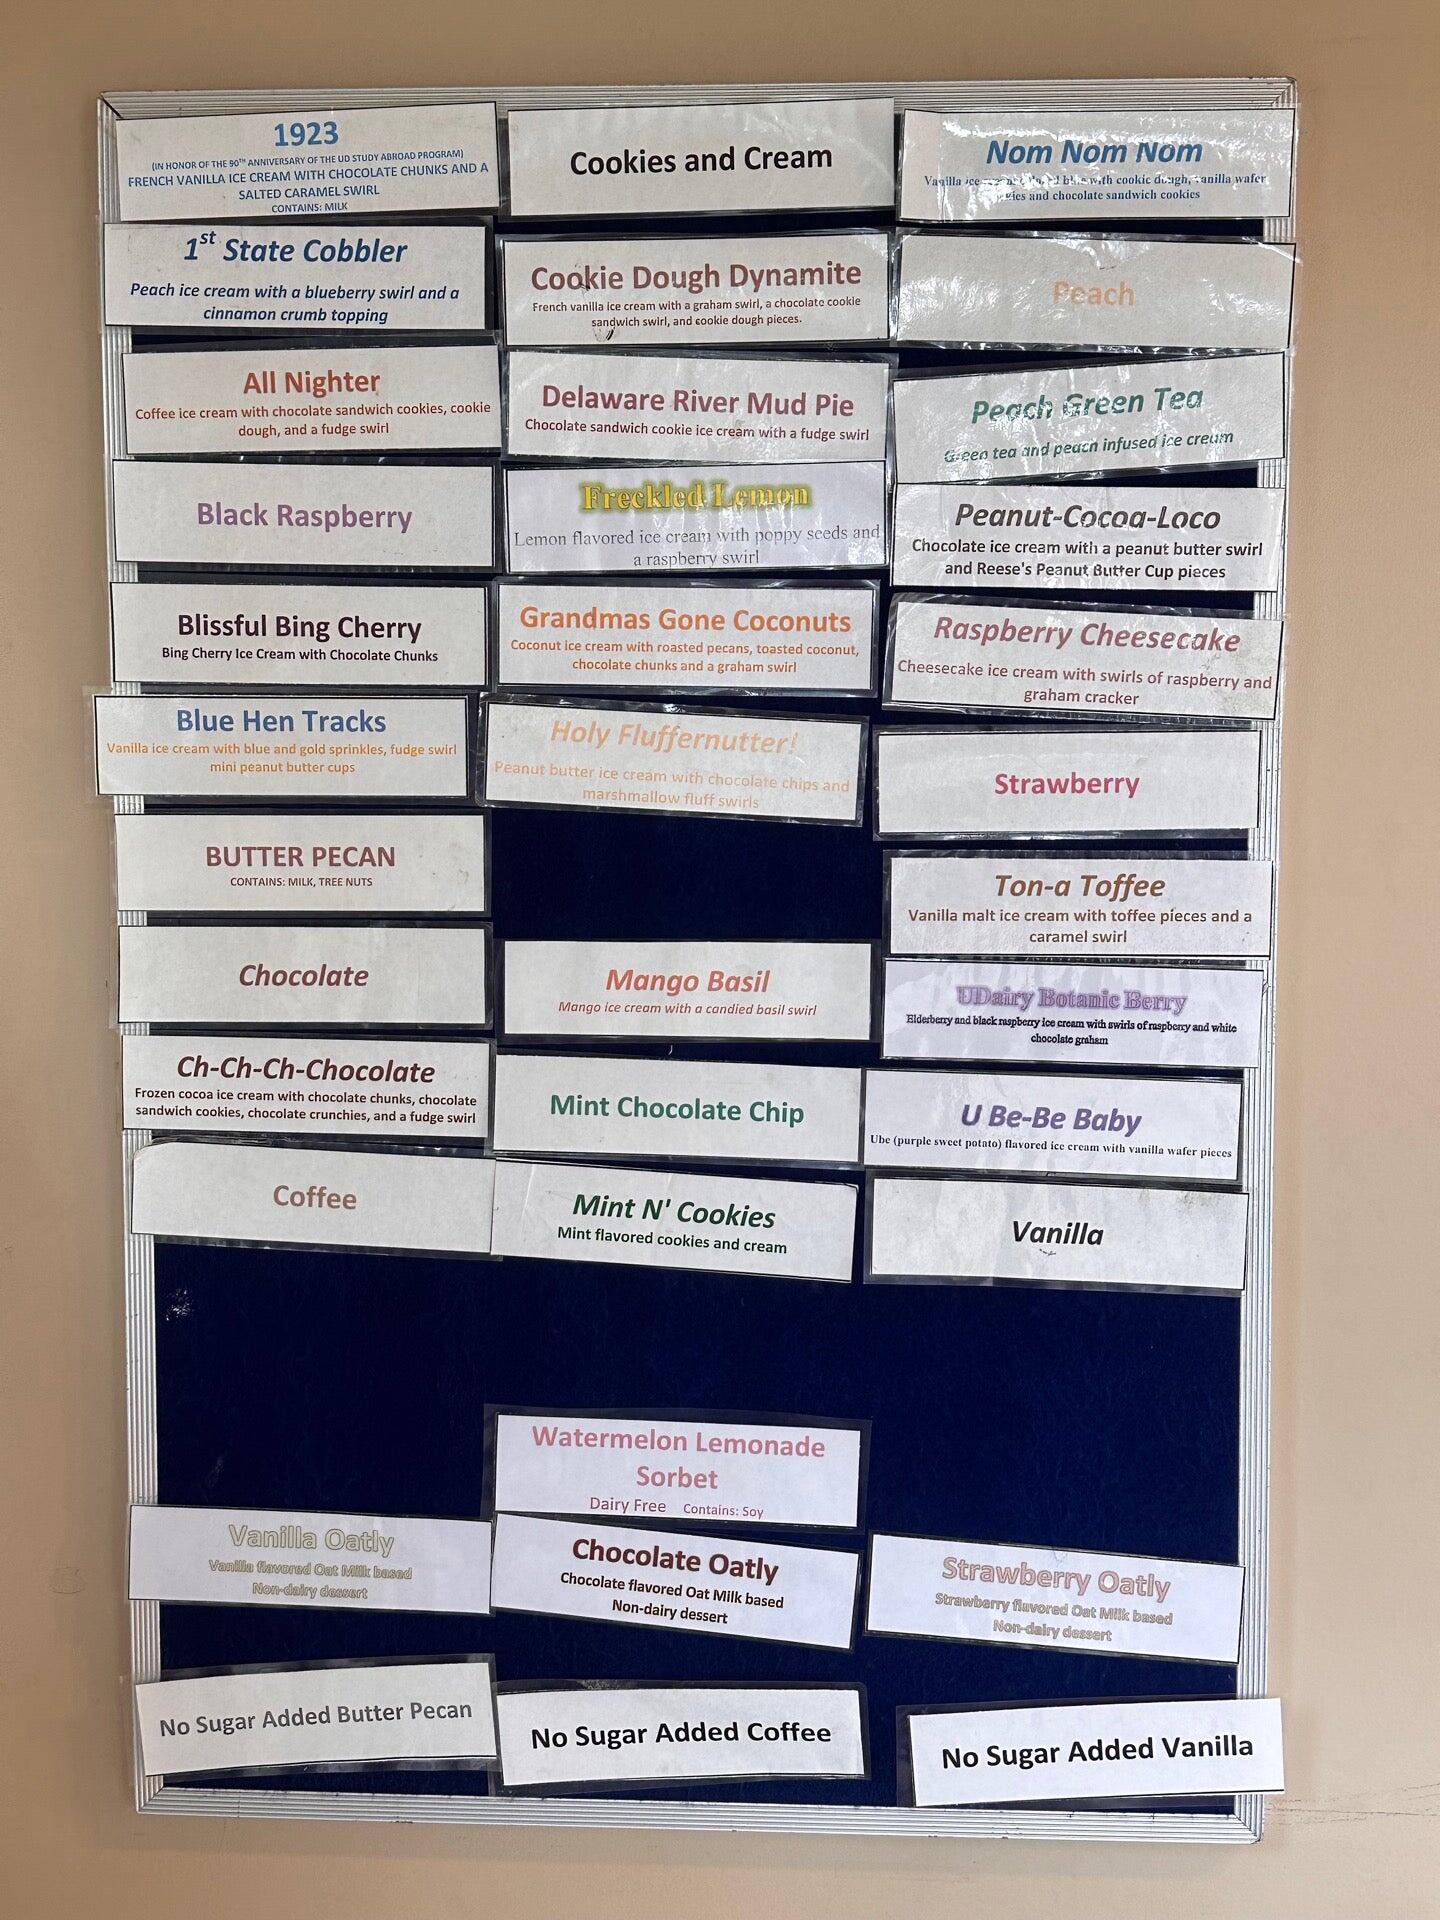 1923
(IN HONOR OF THE 90TH ANNIVERSARY OF THE UD STUDY ABROAD PROGRAM)
FRENCH VANILLA ICE CREAM WITH CHOCOLATE CHUNKS AND A
SALTED CARAMEL SWIRL
CONTAINS: MILK
1st State Cobbler
Peach ice cream with a blueberry swirl and a
cinnamon crumb topping
All Nighter
Coffee ice cream with chocolate sandwich cookies, cookie
dough, and a fudge swirl
Black Raspberry
Blissful Bing Cherry
Bing Cherry Ice Cream with Chocolate Chunks
Blue Hen Tracks
Vanilla ice cream with blue and gold sprinkles, fudge swirl
mini peanut butter cups
BUTTER PECAN
CONTAINS: MILK, TREE NUTS
Chocolate
Ch-Ch-Ch-Chocolate
Frozen cocoa ice cream with chocolate chunks, chocolate
sandwich cookies, chocolate crunchies, and a fudge swirl
Coffee
Cookies and Cream
Cookie Dough Dynamite
French vanilla ice cream with a graham swirl, a chocolate cookie
sandwich swirl, and cookie dough pieces.
Delaware River Mud Pie
Chocolate sandwich cookie ice cream with a fudge swirl
Freckled Lemon
Lemon flavored ice cream with poppy seeds and
a raspberry swirl
Grandmas Gone Coconuts
Coconut ice cream with roasted pecans, toasted coconut,
chocolate chunks and a graham swirl
Holy Fluffernutter!
Peanut butter ice cream with chocolate chips and
marshmallow fluff swirls
Mango Basil
Mango ice cream with a candied basil swirl
Mint Chocolate Chip
Mint N' Cookies
Mint flavored cookies and cream
Nom Nom Nom
Vanilla ice blue with cookie dough, vanilla wafer
and chocolate sandwich cookies
Peach
Peach Green Tea
Green tea and peach infused ice cream
Peanut-Cocoa-Loco
Chocolate ice cream with a peanut butter swirl
and Reese's Peanut Butter Cup pieces
Raspberry Cheesecake
Cheesecake ice cream with swirls of raspberry and
graham cracker
Strawberry
Ton-a Toffee
Vanilla malt ice cream with toffee pieces and a
caramel swirl
UDairy Botanic Berry
Elderberry and black raspberry ice cream with swirls of raspberry and white
chocolate graham
U Be-Be Baby
Ube (purple sweet potato) flavored ice cream with vanilla wafer pieces
Vanilla
Watermelon Lemonade
Sorbet
Dairy Free Contains: Soy
Vanilla Oatly
Vanilla flavored Oat Milk based
Non-dairy dessert
Chocolate Oatly
Chocolate flavored Oat Milk based
Non-dairy dessert
Strawberry Oatly
Strawberry flavored Oat Milk based
Non-dairy dessert
No Sugar Added Butter Pecan
No Sugar Added Coffee
No Sugar Added Vanilla